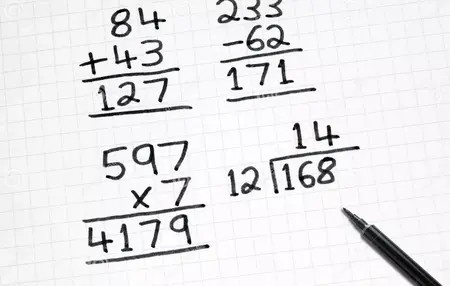 84
+43
127
233
-62
171
597
x 7
4179
14
12 168